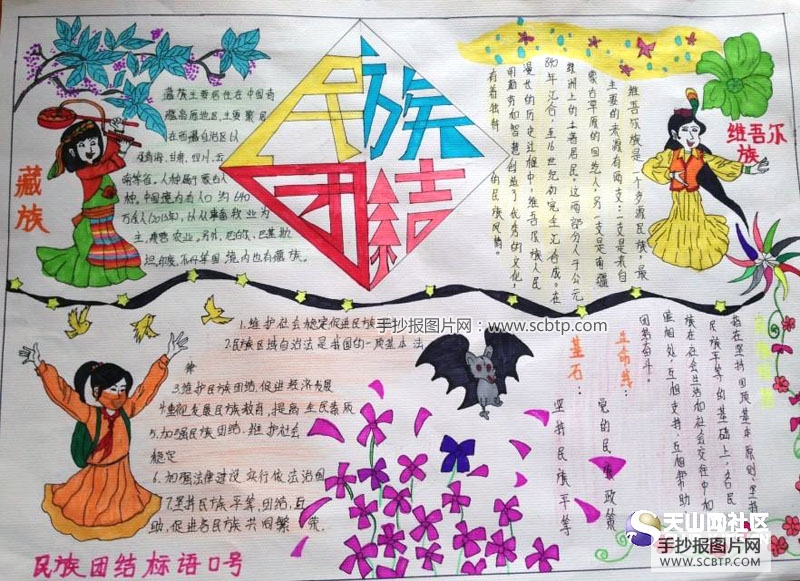 民族
团结
藏族
藏族主要居住在中国青
藏高原地区,主要聚居
在西藏自治区以
及青海,甘肃,四川,云
南等省。人种属于蒙古人
种,中国境内有人口约640
万余人(2013年),以从事畜牧业为
主,兼营农业。另外,尼泊尔、巴基斯
坦、印度、不丹等国境内也有藏族。
维吾尔族
维吾尔族是一个多源民族,最
主要的来源有两支:一支是来自
蒙古草原的回纥人,另一支是南疆
绿洲上的土著居民。这两部分人于公元
840年汇合,至16世纪初完全融合成。在
漫长的历史过程中,维吾尔族人民
用勤劳和智慧创造了优秀的文化,
有着独特的民族风情。
手抄报图片网:www.scbtp.com
1.维护社会稳定促进民族
2.民族区域自治法是我国的一项基本法
律
3.维护民族团结,促进经济发展
4.重视发展民族教育,提高全民素质
5.加强民族团结,维护社会
稳定
6.加强法律建设实行依法治国
7.坚持民族平等,团结,互
助,促进各民族共同繁荣。
民族团结标语口号
指在坚持四项基本原则、坚持
民族平等的基础上,各民
族在社会生活和社会交往中和
睦相处,互相支持,互相帮助,
团结奋斗。
生命线:
党的民族政策
基石:
坚持民族平等
天山网社区
手抄报图片网
WWW.SCBTP.COM